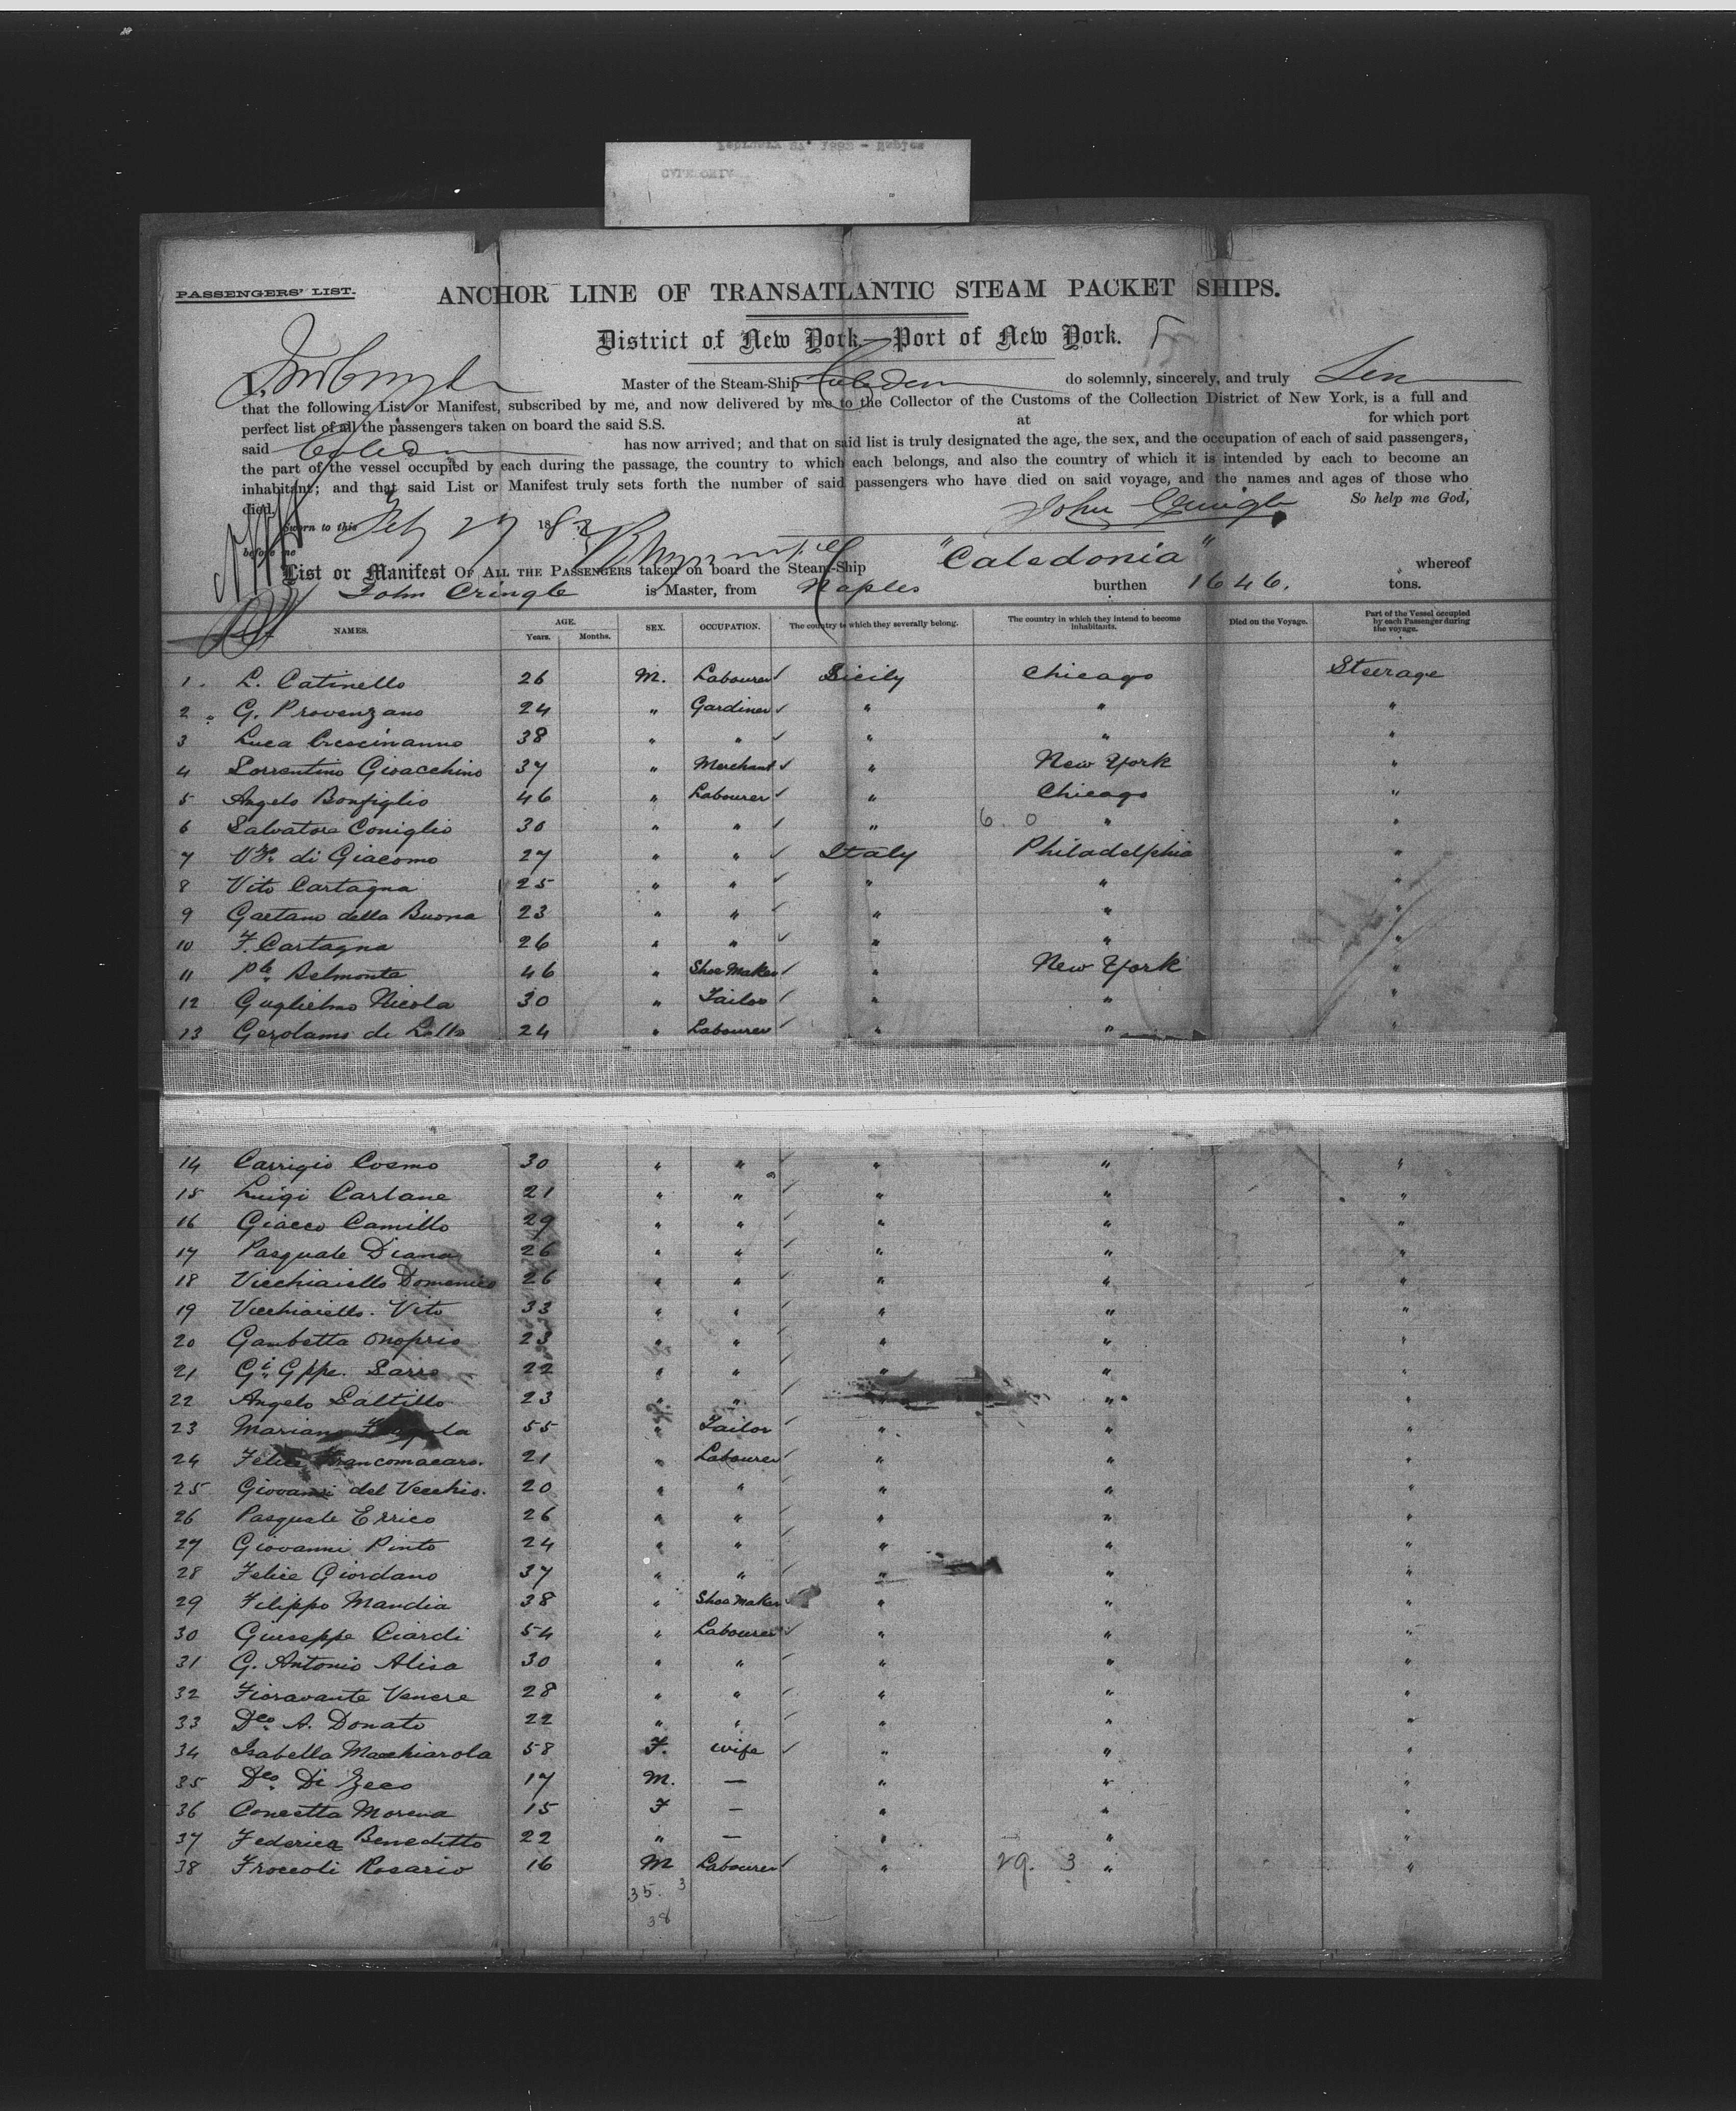 PASSENGERS' LIST.
ANCHOR LINE OF TRANSATLANTIC STEAM PACKET SHIPS.
District of New York—Port of New York.
I, Master of the Steam-Ship do solemnly, sincerely, and truly
that the following List or Manifest, subscribed by me, and now delivered by me to the Collector of the Customs of the Collection District of New York, is a full and
perfect list of all the passengers taken on board the said S.S. at for which port
said has now arrived; and that on said list is truly designated the age, the sex, and the occupation of each of said passengers,
the part of the vessel occupied by each during the passage, the country to which each belongs, and also the country of which it is intended by each to become an
inhabitant; and that said List or Manifest truly sets forth the number of said passengers who have died on said voyage, and the names and ages of those who
died. So help me God,
John Cringle
Sworn to this Feby 27 188
before me
List or Manifest OF ALL THE PASSENGERS taken on board the Steam-Ship "Caledonia" whereof
John Cringle is Master, from Naples burthen 1646. tons.
NAMES. AGE. Years. Months. SEX. OCCUPATION. The country to which they severally belong. The country in which they intend to become inhabitants. Died on the Voyage. Part of the Vessel occupied by each Passenger during the voyage.
1. L. Catinello 26 M. Labourer Sicily Chicago Steerage
2 G. Provenzano 24 " Gardiner " " "
3 Luca Crescimanno 38 " " " " "
4 Sorrentino Gioacchino 37 " Merchant " New York "
5 Angelo Bonfiglio 46 " Labourer " Chicago "
6 Salvatore Coniglio 30 " " " 6. 0 " "
7 di Giacomo 27 " " Italy Philadelphia "
8 Vito Cartagna 25 " " " " "
9 Gaetano della Buona 23 " " " " "
10 F. Cartagna 26 " " " " "
11 Belmonte 46 " Shoe Maker " New York "
12 Guglielmo Nicola 30 " Tailor " " "
13 Gerolamo de Lollo 24 " Labourer " " "
14 Carrigio Cosmo 30 " " " " "
15 Luigi Carlane 21 " " " " "
16 Giacco Camillo 29 " " " " "
17 Pasquale Diana 26 " " " " "
18 Vicchiaiello Domenico 26 " " " " "
19 Vicchiaiello. Vito 33 " " " " "
20 Gambetta Onoprio 23 " " " " "
21 Gi. Gppe. Sarro 22 " " " " "
22 Angelo Saltillo 23 " " " " "
23 Mariano 55 " Tailor " " "
24 Felice Francomacaro. 21 " Labourer " " "
25 Giovanni del Vecchio. 20 " " " " "
26 Pasquale Errico 26 " " " " "
27 Giovanni Pinto 24 " " " " "
28 Felice Giordano 37 " " " " "
29 Filippo Mandia 38 " Shoe Maker " " "
30 Giuseppe Ciardi 54 " Labourer " " "
31 G. Antonio Alisa 30 " " " " "
32 Fioravante Venere 28 " " " " "
33 Dco. A. Donato 22 " " " " "
34 Isabella Macchiarola 58 F. Wife " " "
35 Dco. Di Zeco 17 M. — " " "
36 Concetta Morena 15 F — " " "
37 Federica Beneditto 22 " — " " "
38 Froccoli Rosario 16 M Labourer " 29. 3 " "
35. 3
38